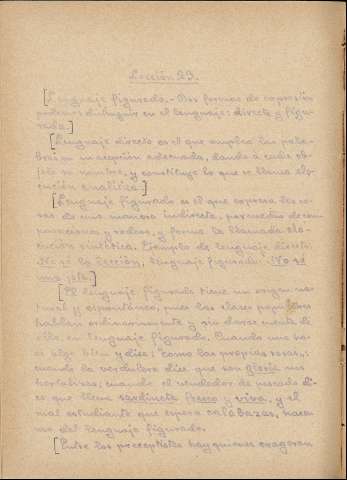 Lección 23.
[Lenguaje figurado.- Dos formas de expresión
podemos distinguir en el lenguaje: directa y figu-
rada.]
[Lenguaje directo es el que emplea las pala-
bras en su acepción adecuada, dando a cada ob-
jeto su nombre, y constituye lo que se llama elo-
cución analítica.]
[Lenguaje figurado es el que expresa las co-
sas de una manera indirecta, por medio de com-
paraciones y rodeos, y forma la llamada elo-
cución sintética. Ejemplo de lenguaje directo:
No sé la lección; lenguaje figurado: ¡No sé
una jota!]
[El lenguaje figurado tiene un origen na-
tural y espontáneo, pues las clases populares
hablan ordinariamente y sin darse cuenta de
ello en lenguaje figurado. Cuando uno ba
 algo bien y dice: "como las propias rosas";
cuando la verdulera dice que son gloria sus
hortalizas; cuando el vendedor de pescado di-
ce que lleva sardineta fresca y viva, y el
mal estudiante que espera calabazas, hacen
uso del lenguaje figurado.
[Entre los preceptistas hay quienes exageran